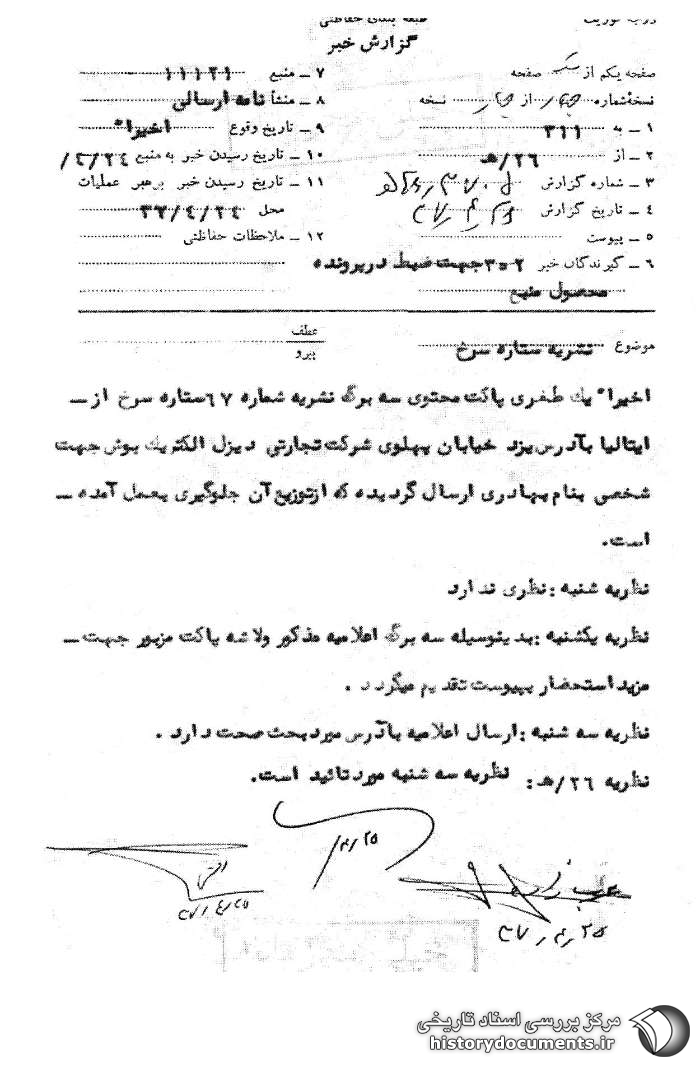 درجه فوریت
طبقه بندی حفاظتی
گزارش خبر
صفحه یکم از یک صفحه
نسخه شماره چهار از چهار نسخه
۱ ــ به ۳۱۱
۲ ــ از ۲۶/هـ
۳ ــ شماره گزارش
۴ ــ تاریخ گزارش
۵ ــ پیوست
۶ ــ گیرندگان خبر ۲-۳جهت ضبط در پرونده
محصول منبع
۷ ــ منبع ۱۱۱۲۱
۸ ــ منشأ نامه ارسالی
۹ ــ تاریخ وقوع اخیراً
۱۰ ــ تاریخ رسیدن خبر به منبع ۴/۲۴/
۱۱ ــ تاریخ رسیدن خبر برهبر عملیات
محل ۳۷/۴/۲۴
۱۲ ــ ملاحظات حفاظتی
موضوع نشریه ستاره سرخ
عطف
پیرو
اخیراً یک طغری پاکت محتوی سه برگ نشریه شماره ۶۷ستاره سرخ از ــ
ایتالیا بآدرس یزد خیابان پهلوی شرکت تجارتی دیزل الکتریک بوش جهت
شخصی بنام بهادری ارسال گردیده که ازتوزیع آن جلوگیری بعمل آمده ــ
است.
نظریه شنبه :نظری ندارد
نظریه یکشنبه :بدینوسیله سه برگ اعلامیه مذکور ولاشه پاکت مزبور جهت ــ
مزید استحضار بپیوست تقدیم میگردد .
نظریه سه شنبه :ارسال اعلامیه بآدرس مورد بحث صحت دارد .
نظریه ۲۶/هـ: نظریه سه شنبه مورد تائید است.
۴/۲۵
۳۷/۴/۲۵
۳۷/۴/۲۵
مرکز بررسی اسناد تاریخی
historydocuments.ir